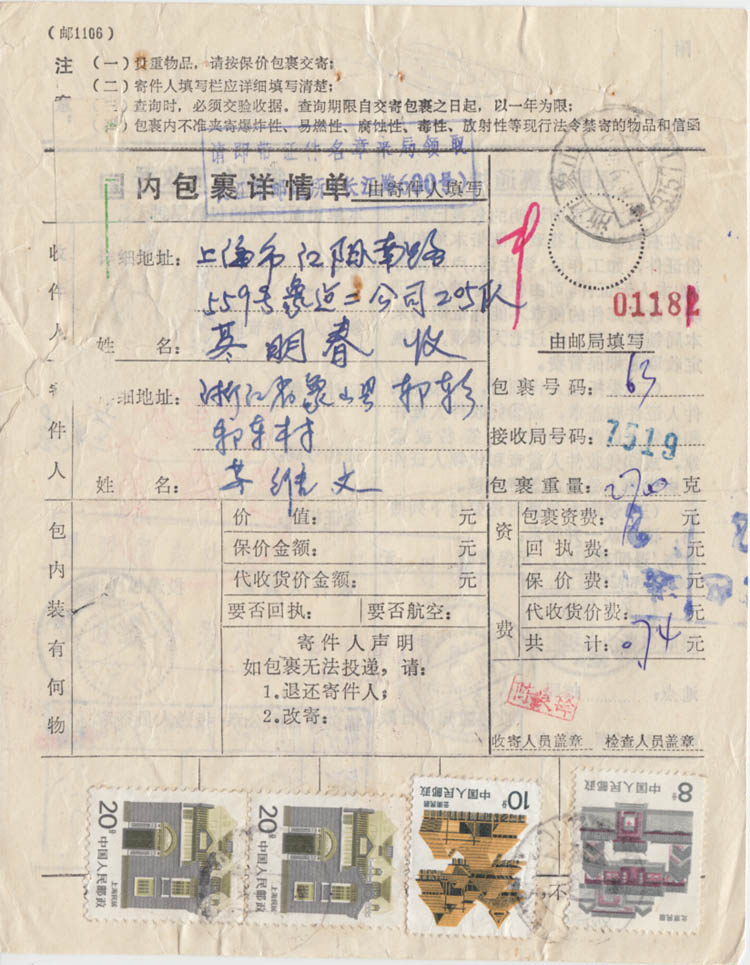 (邮1106)
注
(一) 贵重物品，请按保价包裹交寄；
(二) 寄件人填写栏应详细填写清楚；
(三) 查询时，必须交验收据。查询期限自交寄包裹之日起，以一年为限；
包裹内不准夹寄爆炸性、易燃性、腐蚀性、毒性、放射性等现行法令禁寄的物品和信函
请即带证件名章来局领取
长江路(600号)
国内包裹详情单 由寄件人填写
收件人
详细地址：上海市江阴南路
559号象运二公司205队
姓名：明春 收
寄件人
详细地址：浙江省象山县
村
姓名：维文
01181
由邮局填写
包裹号码：63
接收局号码：7519
包裹重量：克
包内装有何物
价值：元
保价金额：元
代收货价金额：元
要否回执： 要否航空：
寄件人声明
如包裹无法投递，请：
1.退还寄件人；
2.改寄：
资费
包裹资费：元
回执费：元
保价费：元
代收货价费：元
共计：.74元
收寄人员盖章 检查人员盖章
20分 中国人民邮政 上海民居
20分 中国人民邮政 上海民居
10分 中国人民邮政 云南民居
8分 中国人民邮政 北京民居
不